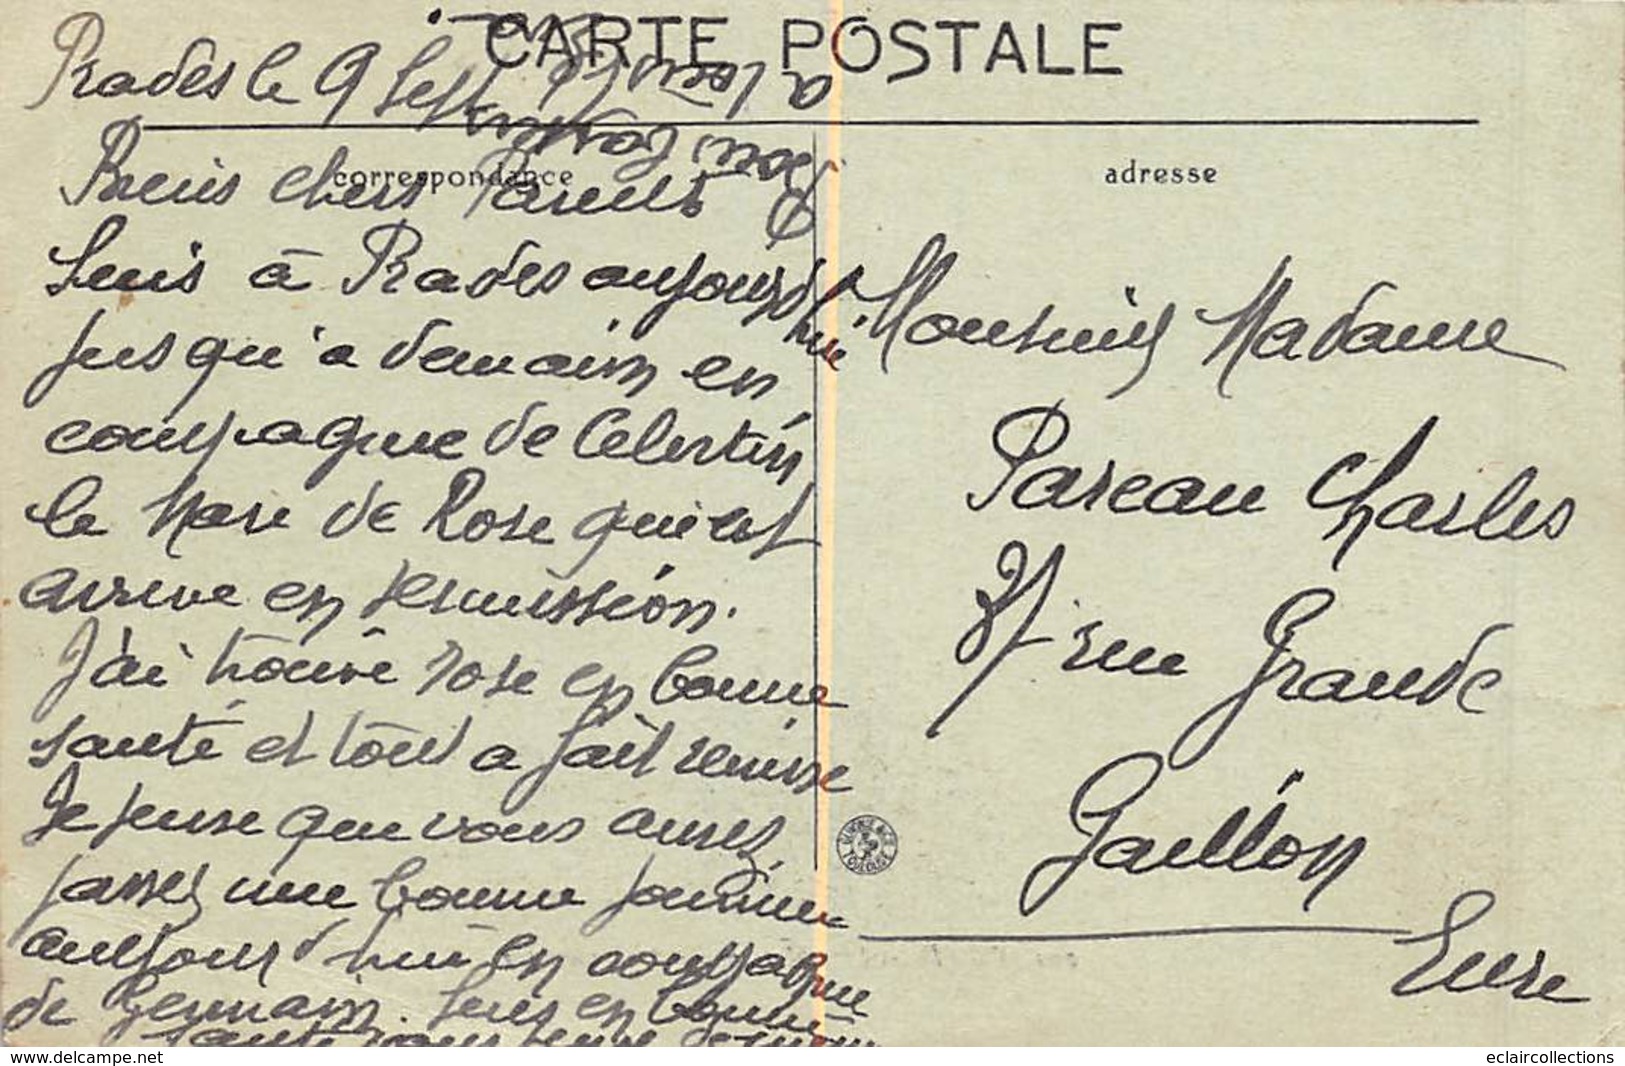 CARTE POSTALE
correspondance
adresse
Prades le 9 Sept
Biens chers Parents
Suis à Prades aujourd'hui
jusqu'a demain en
compagnie de Celestin
le Mari de Rose qui est
arrive en permission.
J'ai trouvé rose en bonne
santé et tout a fait remise
Je pense que vous aurez
passer une bonne journée
aujourd'hui en compagnie
de Germain. Suis en bonne
santé
Monsieur Madame
Pareau Charles
rue Grande
Gaillon
Eure
delcampe.net
eclaircollections